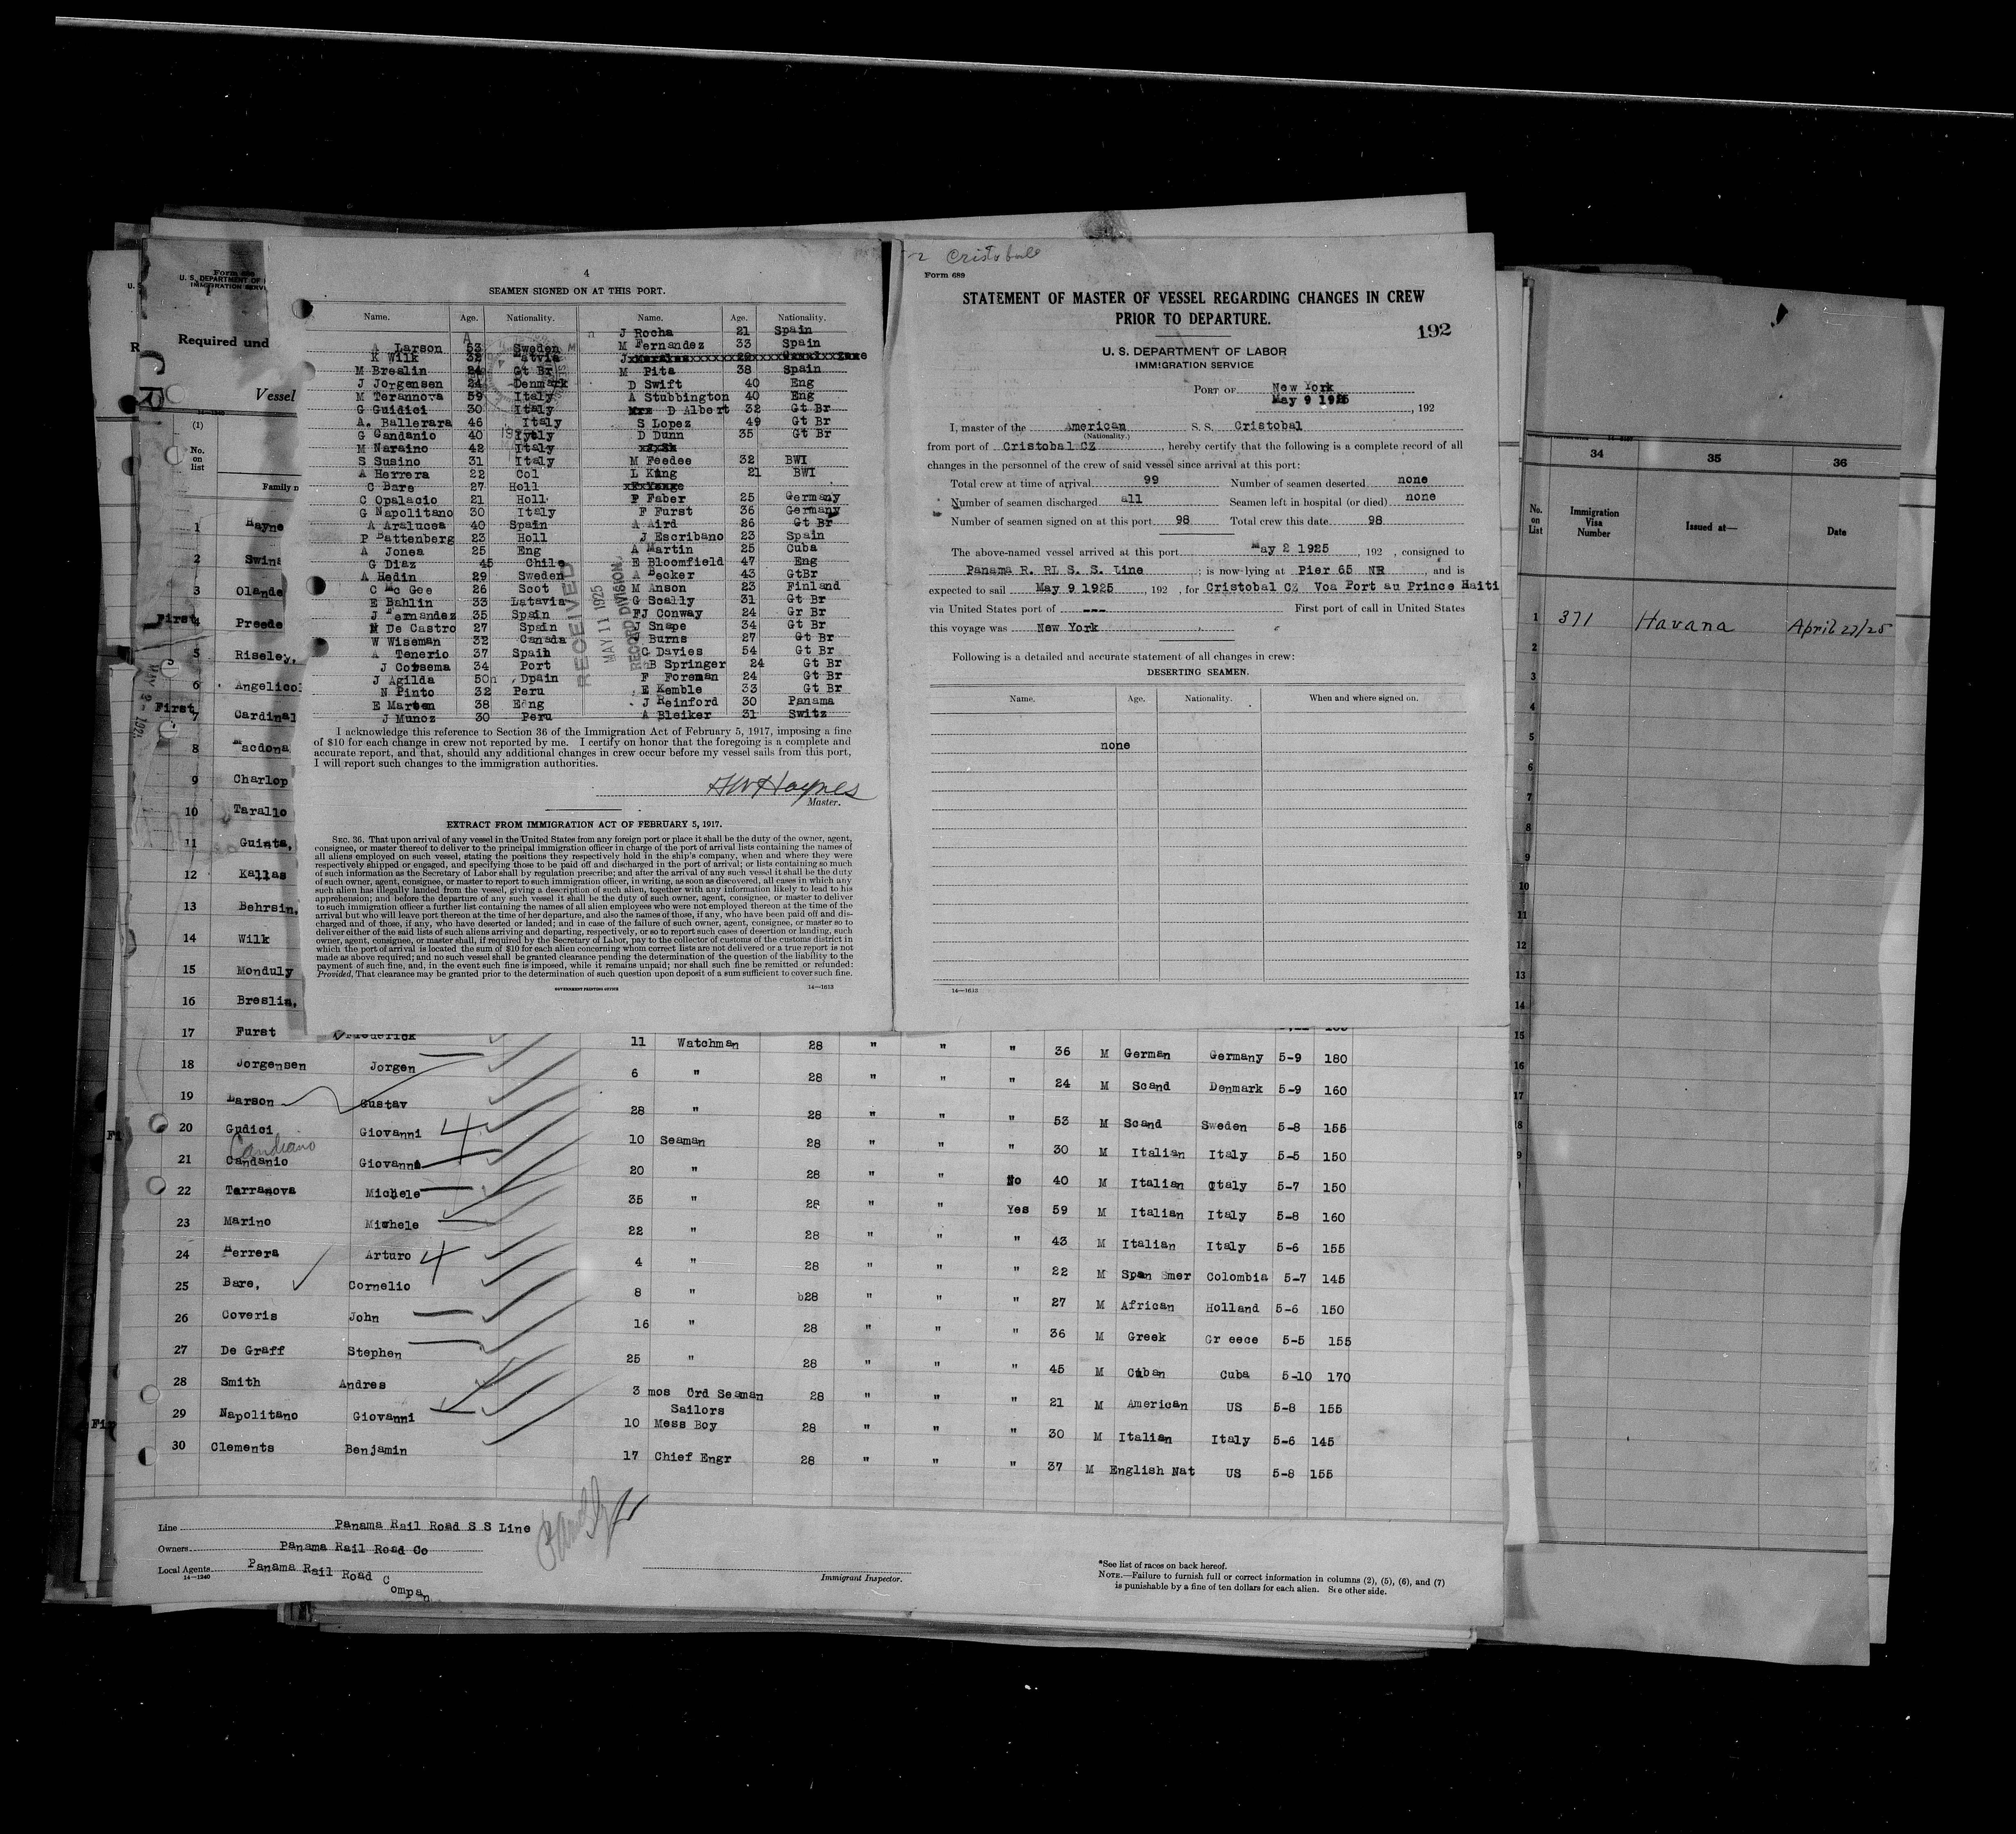 4
SEAMEN SIGNED ON AT THIS PORT.
Name. Age. Nationality. Name. Age. Nationality.
J Rocha 21 Spain
A Larson 53 Sweden M Fernandez 33 Spain
K Wilk 32 atvia
M Breslin 24 Gt Br M Pita 38 Spain
J Jorgensen 24 Denmark D Swift 40 Eng
M Terannova 59 Italy A Stubbington 40 Eng
G Guidici 30 Italy Mrs D Albert 32 Gt Br
A. Ballerara 46 Italy S Lopez 49 Gt Br
G Candanio 40 Iytly D Dunn 35 Gt Br
M Naraino 42 Italy
S Susino 31 Italy M Feedee 32 BWI
A Herrera 22 Col L King 21 BWI
C Bare 27 Holl
C Opalacio 21 Holl P Faber 25 Germany
G Napolitano 30 Italy F Furst 36 Germany
A Aralucea 40 Spain A Aird 26 Gt Br
P Battenberg 23 Holl J Escribano 23 Spain
A Jonea 25 Eng A Martin 25 Cuba
G Diaz 45 Chile E Bloomfield 47 Eng
A Hedin 29 Sweden A Becker 43 GtBr
C Mc Gee 26 Scot M Anson 23 Finland
E Bahlin 33 Latavia G Scally 31 Gt Br
J Fernandez 35 Spain FJ Conway 24 Gr Br
M De Castro 27 Spain J Snape 34 Gt Br
W Wiseman 32 Canada Burns 27 Gt Br
A Tenerio 37 Spain G Davies 54 Gt Br
J Cotsema 34 Port B Springer 24 Gt Br
J Agilda 50 Dpain F Foreman 24 Gt Br
N Pinto 32 Peru E Kemble 33 Gt Br
E Marten 38 Eng J Reinford 30 Panama
J Munoz 30 Peru A Bleiker 31 Switz
RECEIVED
MAY 11 1925
RECORD DIVISION
I acknowledge this reference to Section 36 of the Immigration Act of February 5, 1917, imposing a fine
of $10 for each change in crew not reported by me. I certify on honor that the foregoing is a complete and
accurate report, and that, should any additional changes in crew occur before my vessel sails from this port,
I will report such changes to the immigration authorities.
HW Haynes
Master.
EXTRACT FROM IMMIGRATION ACT OF FEBRUARY 5, 1917.
SEC. 36. That upon arrival of any vessel in the United States from any foreign port or place it shall be the duty of the owner, agent,
consignee, or master thereof to deliver to the principal immigration officer in charge of the port of arrival lists containing the names of
all aliens employed on such vessel, stating the positions they respectively hold in the ship's company, when and where they were
respectively shipped or engaged, and specifying those to be paid off and discharged in the port of arrival; or lists containing so much
of such information as the Secretary of Labor shall by regulation prescribe; and after the arrival of any such vessel it shall be the duty
of such owner, agent, consignee, or master to report to such immigration officer, in writing, as soon as discovered, all cases in which any
such alien has illegally landed from the vessel, giving a description of such alien, together with any information likely to lead to his
apprehension; and before the departure of any such vessel it shall be the duty of such owner, agent, consignee, or master to deliver
to such immigration officer a further list containing the names of all alien employees who were not employed thereon at the time of the
arrival but who will leave port thereon at the time of her departure, and also the names of those, if any, who have been paid off and dis-
charged and of those, if any, who have deserted or landed; and in case of the failure of such owner, agent, consignee, or master so to
deliver either of the said lists of such aliens arriving and departing, respectively, or so to report such cases of desertion or landing, such
owner, agent, consignee, or master shall, if required by the Secretary of Labor, pay to the collector of customs of the customs district in
which the port of arrival is located the sum of $10 for each alien concerning whom correct lists are not delivered or a true report is not
made as above required; and no such vessel shall be granted clearance pending the determination of the question of the liability to the
payment of such fine, and, in the event such fine is imposed, while it remains unpaid; nor shall such fine be remitted or refunded:
Provided, That clearance may be granted prior to the determination of such question upon deposit of a sum sufficient to cover such fine.
GOVERNMENT PRINTING OFFICE 14—1613
Cristobal
Form 689
STATEMENT OF MASTER OF VESSEL REGARDING CHANGES IN CREW
PRIOR TO DEPARTURE.
192
U. S. DEPARTMENT OF LABOR
IMMIGRATION SERVICE
PORT OF New York
May 9 1925, 192
I, master of the American S. S. Cristobal
(Nationality.)
from port of Cristobal CZ, hereby certify that the following is a complete record of all
changes in the personnel of the crew of said vessel since arrival at this port:
Total crew at time of arrival 99 Number of seamen deserted none
Number of seamen discharged all Seamen left in hospital (or died) none
Number of seamen signed on at this port 98 Total crew this date 98
The above-named vessel arrived at this port May 2 1925, 192 , consigned to
Panama R. RL S. S. Line; is now lying at Pier 65 NR, and is
expected to sail May 9 1925, 192 , for Cristobal CZ Voa Port au Prince Haiti
via United States port of --- First port of call in United States
this voyage was New York
Following is a detailed and accurate statement of all changes in crew:
DESERTING SEAMEN.
Name. Age. Nationality. When and where signed on.
none
14—1613
U. S. DEPARTMENT OF
IMMIGRATION SERV
Required und
Vessel
14—1240
(1)
No. on list
Family n
1 Hayne
2 Swin
3 Olande
First 4 Preede
5 Riseley,
6 Angelico
First 7 Cardinal
8 Macdona
9 Charlop
10 Tarallo
11 Guista,
12 Kallas
13 Behrsin,
14 Wilk
15 Monduly
16 Breslin,
17 Furst Frederick 11 Watchman 28 " " " 36 M German Germany 5-9 180
18 Jorgensen Jorgen 6 " 28 " " " 24 M Scand Denmark 5-9 160
19 Larson Gustav 28 " 28 " " " 53 M Scand Sweden 5-8 155
20 Gudici Giovanni 4 10 Seaman 28 " " " 30 M Italian Italy 5-5 150
Candiano
21 Candanio Giovanni 20 " 28 " " No 40 M Italian Qtaly 5-7 150
22 Terranova Michele 35 " 28 " " Yes 59 M Italian Italy 5-8 160
23 Marino Mishele 22 " 28 " " " 43 M Italian Italy 5-6 155
24 Herrera Arturo 4 4 " 28 " " " 22 M Span Amer Colombia 5-7 145
25 Bare, Cornelio 8 " b28 " " " 27 M African Holland 5-6 150
26 Coveris John 16 " 28 " " " 36 M Greek Gr eece 5-5 155
27 De Graff Stephen 25 " 28 " " " 45 M Cuban Cuba 5-10 170
28 Smith Andres 3 mos Ord Seaman 28 " " " 21 M American US 5-8 155
Sailors
29 Napolitano Giovanni 10 Mess Boy 28 " " " 30 M Italian Italy 5-6 145
30 Clements Benjamin 17 Chief Engr 28 " " " 37 M English Nat US 5-8 155
Line Panama Rail Road S S Line
Owners Panama Rail Road Co
Local Agents Panama Rail Road Compan
14—1240
Immigrant Inspector.
*See list of races on back hereof.
NOTE.—Failure to furnish full or correct information in columns (2), (5), (6), and (7)
is punishable by a fine of ten dollars for each alien. See other side.
34 35 36
No. on List Immigration Visa Number Issued at— Date
1 371 Havana April 27/25
2
3
4
5
6
7
8
9
10
11
12
13
14
15
16
17